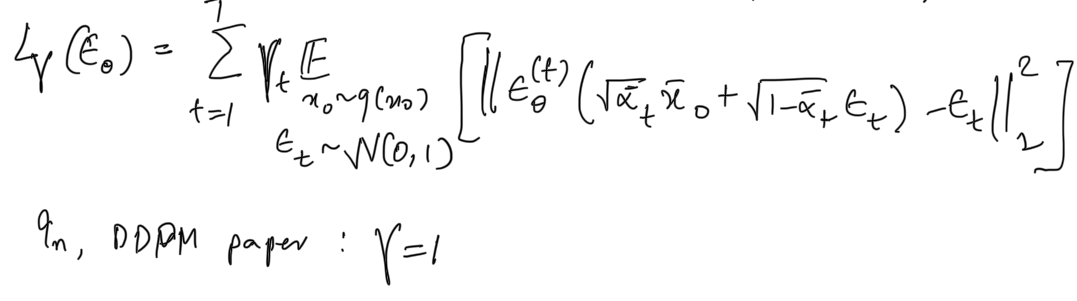 L_γ(ϵ_θ) = Σ_{t=1}^{T} γ_t E_{x_0~q(x_0), ϵ_t~N(0,1)} [||ϵ_θ^{(t)}(√ᾱ_t x̄_0 + √1-ᾱ_t ϵ_t) - ϵ_t||_2^2]
In, DDPM paper : γ=1